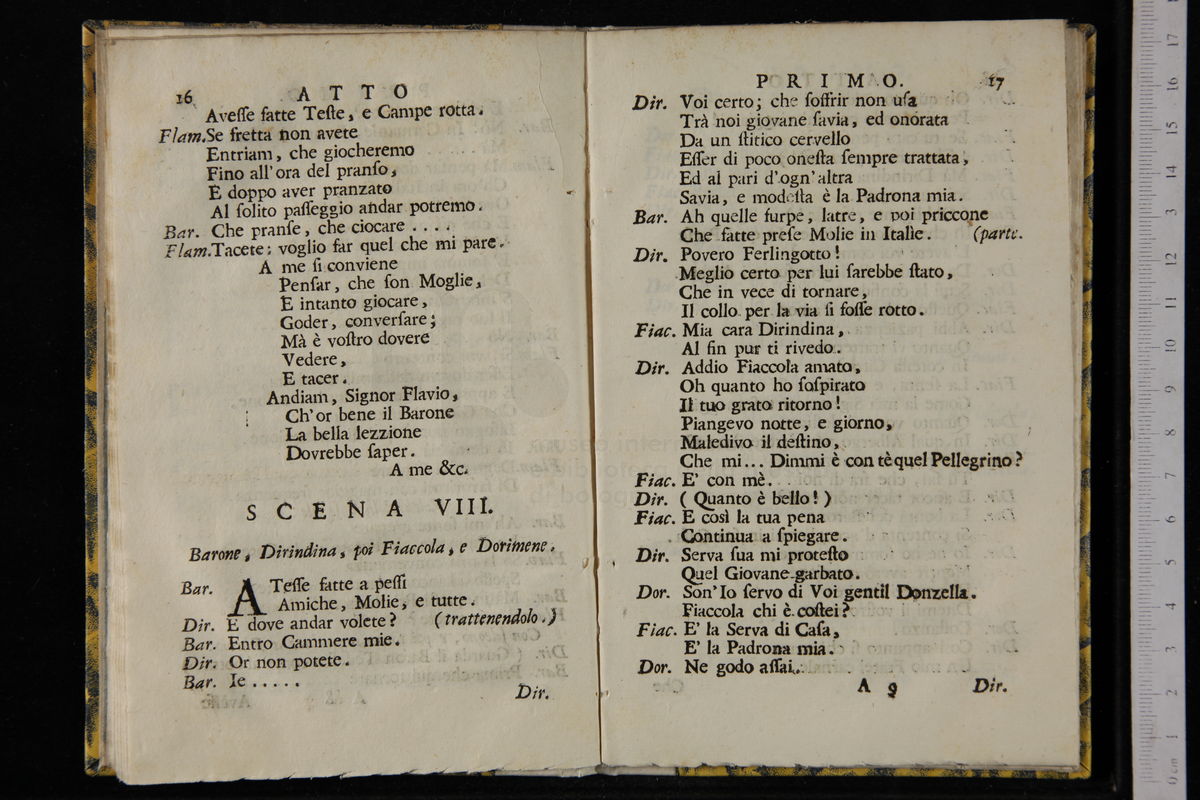 16 ATTO
Aveſſe fatte Teſte, e Campe rotta.
Flam. Se fretta non avete
Entriam, che giocheremo
Fino all'ora del pranſo,
E doppo aver pranzato
Al ſolito paſſeggio andar potremo.
Bar. Che pranſe, che ciocare ....
Flam. Tacete; voglio far quel che mi pare.
A me ſi conviene
Penſar, che ſon Moglie,
E intanto giocare,
Goder, converſare;
Mà è voſtro dovere
Vedere,
E tacer.
Andiam, Signor Flavio,
Ch'or bene il Barone
La bella lezzione
Dovrebbe ſaper.
A me &c.
SCENA VIII.
Barone, Dirindina, poi Fiaccola, e Dorimene.
Bar. ATeſſe fatte a peſſi
Amiche, Molie, e tutte.
Dir. E dove andar volete? (trattenendolo.)
Bar. Entro Cammere mie.
Dir. Or non potete.
Bar. Ie .....
Dir.
PRIMO. 17
Dir. Voi certo; che ſoffrir non uſa
Trà noi giovane ſavia, ed onorata
Da un ſtitico cervello
Eſſer di poco oneſta ſempre trattata,
Ed al pari d'ogn'altra
Savia, e modeſta è la Padrona mia.
Bar. Ah quelle furpe, latre, e poi priccone
Che fatte preſe Molie in Italie. (parte.
Dir. Povero Ferlingotto!
Meglio certo per lui ſarebbe ſtato,
Che in vece di tornare,
Il collo per la via ſi foſſe rotto.
Fiac. Mia cara Dirindina,
Al fin pur ti rivedo.
Dir. Addio Fiaccola amato,
Oh quanto ho ſoſpirato
Il tuo grato ritorno!
Piangevo notte, e giorno,
Maledivo il deſtino,
Che mi... Dimmi è con tè quel Pellegrino?
Fiac. E' con mè.
Dir. (Quanto è bello!)
Fiac. E così la tua pena
Continua a ſpiegare.
Dir. Serva ſua mi proteſto
Quel Giovane garbato.
Dor. Son'Io ſervo di Voi gentil Donzella.
Fiaccola chi è coſtei?
Fiac. E' la Serva di Caſa,
E' la Padrona mia.
Dor. Ne godo aſſai.
A 9 Dir.